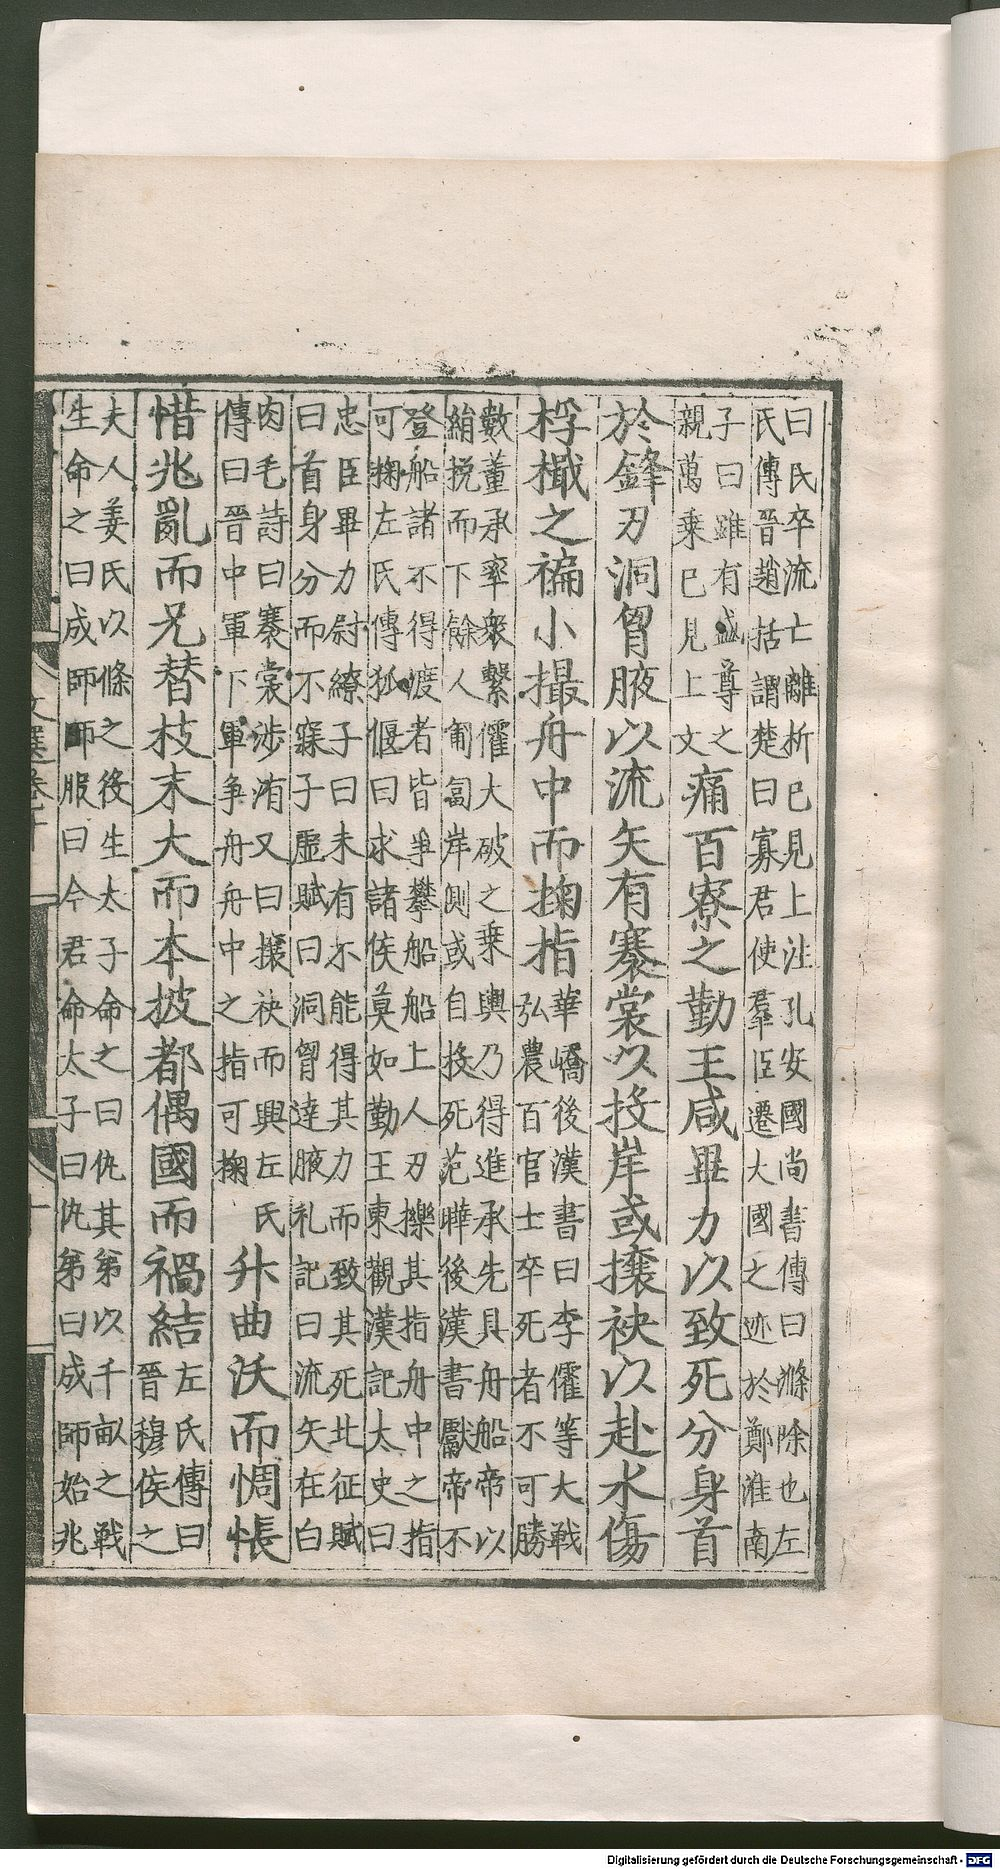 曰民卒流亡離析已見上注孔安國尚書傳曰滌除也左
氏傳晉趙括謂楚曰寡君使羣臣遷大國之迹於鄭淮南
子曰雖有盛尊之
親萬乗已見上文
痛百寮之勤王咸畢力以致死分身首
於鋒刃洞胷腋以流矢有褰裳以投岸或攘袂以赴水傷
桴檝之褊小撮舟中而掬指
華嶠後漢書曰李傕等大戰
弘農百官士卒死者不可勝
數董承率衆繫傕大破之乗輿乃得進承先具舟船帝以
絹挽而下餘人匍匐岸側或自投死范曄後漢書獻帝不
登船諸不得渡者皆爭攀船船上人刃擽其指舟中之指
可掬左氏傳狐偃曰求諸侯莫如勤王東觀漢記太史曰
忠臣畢力尉繚子曰未有不能得其力而致其死北征賦
曰首身分而不寤子虛賦曰洞胷達腋礼記曰流矢在白
肉毛詩曰褰裳涉洧又曰攘袂而興左氏
傳曰晉中軍下軍爭舟舟中之指可掬
升曲沃而惆悵
惜兆亂而兄替枝末大而本披都偶國而禍結
左氏傳曰
晉穆侯之
夫人姜氏以條之役生太子命之曰仇其弟以千畝之戰
生命之曰成師師服曰今君命太子曰仇弟曰成師始兆
Digitalisierung gefördert durch die Deutsche Forschungsgemeinschaft - DFG